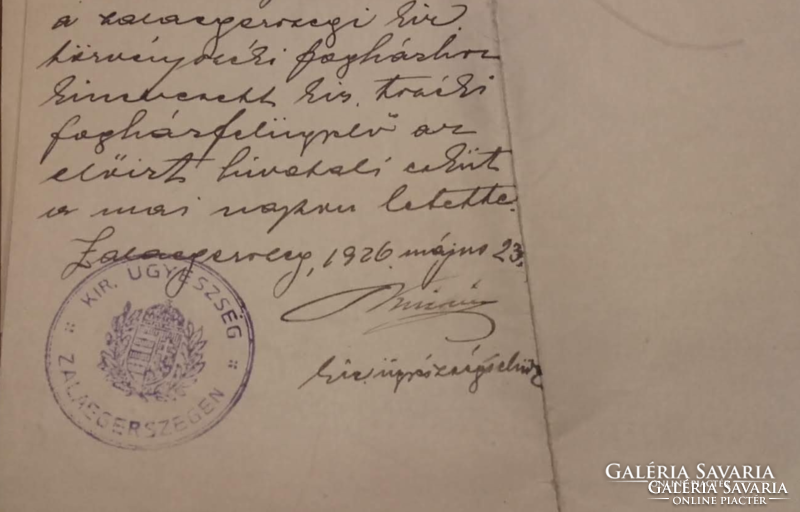 a zalaegerszegi kir.
törvényszéki fogházhoz
kinevezett kir. tszéki
fogházfelügyelő az
előirt hivatali esküt
a mai napon letette.
Zalaegerszeg, 1926. május 23.
kir. ügyészség elnöke
KIR. ÜGYÉSZSÉG
ZALAEGERSZEGEN
GALÉRIA SAVARIA
ONLINE PIACTÉR
GALÉRIA SAVARIA
ONLINE PIACTÉR